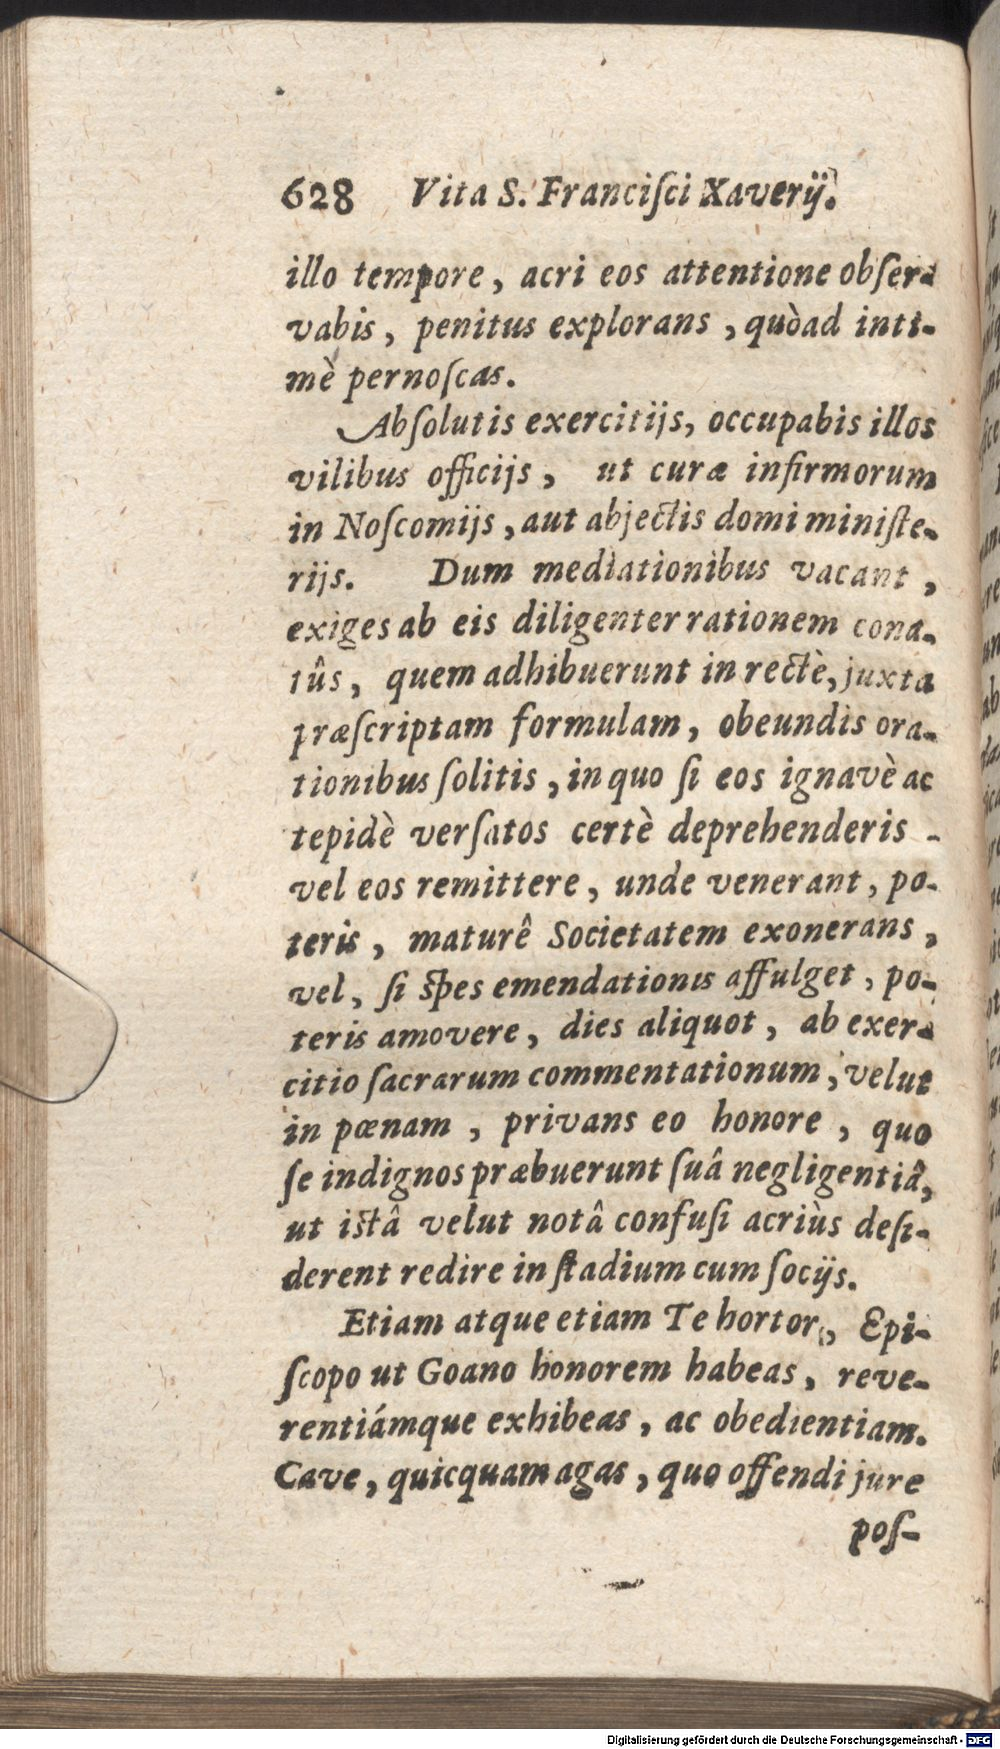 628 Vita S. Franciſci Xaverij.
illo tempore, acri eos attentione obſer-
vabis, penitus explorans, quòad inti-
mè pernoſcas.
Abſolutis exercitijs, occupabis illos
vilibus officijs, ut curæ infirmorum
in Noſcomijs, aut abjectis domi miniſte-
rijs. Dum mediationibus vacant,
exiges ab eis diligenter rationem cona-
tûs, quem adhibuerunt in rectè, juxta
præſcriptam formulam, obeundis ora-
tionibus ſolitis, in quo ſi eos ignavè ac
tepidè verſatos certè deprehenderis -
vel eos remittere, unde venerant, po-
teris, maturê Societatem exonerans,
vel, ſi spes emendationis affulget, po-
teris amovere, dies aliquot, ab exer-
citio ſacrarum commentationum, velut
in pœnam, privans eo honore, quo
ſe indignos præbuerunt ſuâ negligentiâ,
ut istâ velut notâ confuſi acriùs deſi-
derent redire in ſtadium cum ſocijs.
Etiam atque etiam Te hortor, Epi-
ſcopo ut Goano honorem habeas, reve-
rentiámque exhibeas, ac obedientiam.
Cave, quicquam agas, quo offendi jure
poſ-
Digitalisierung gefördert durch die Deutsche Forschungsgemeinschaft - DFG